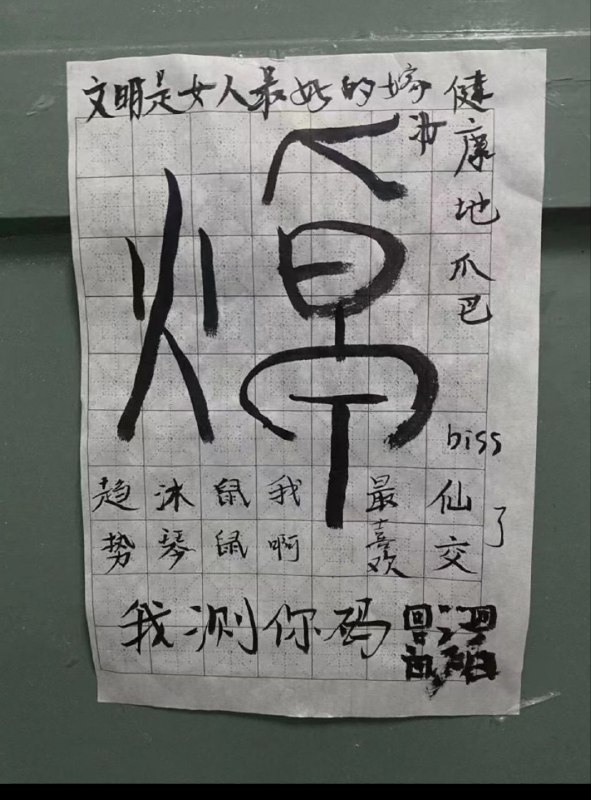 文明是女人最好的嫁妆
健康地爪巴
biss
趋势
沐琴
鼠鼠
我啊
最喜欢
仙交了
我测你码